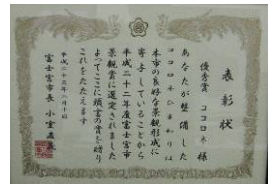 表彰状
優秀賞 ココロネ 様
あなたが整備した
ココロネひまわりは
本市の良好な景観形成に
寄与していることから
平成二十二年度富士宮市
景観賞に選定されました
よってここに頭書の賞を贈り
これをたたえます
平成二十三年二月十日
富士宮市長 小室直義